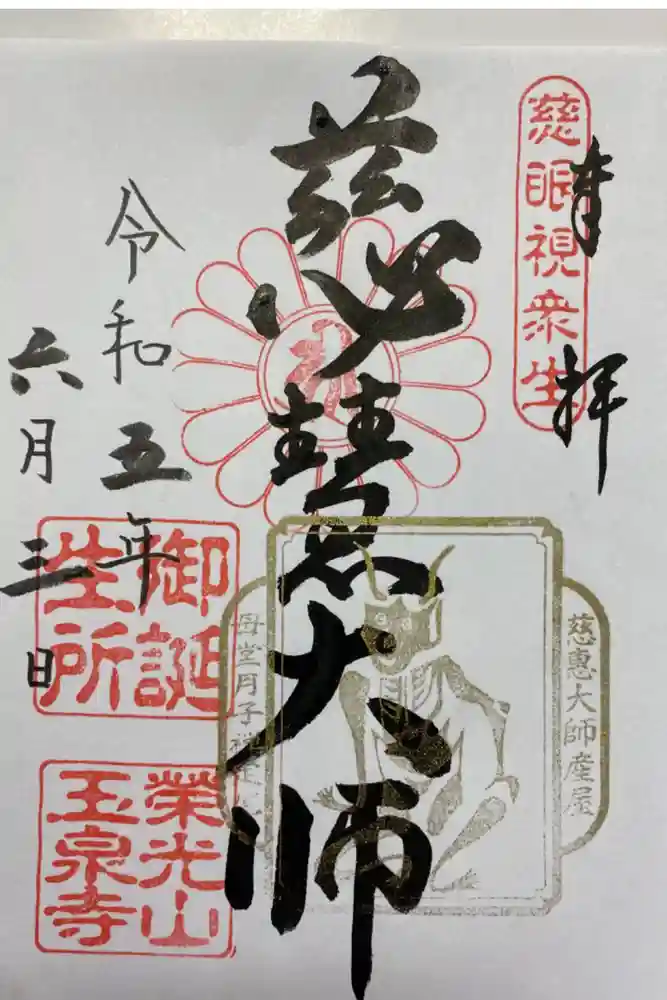 奉拝
慈眼視衆生
慈慧大師
慈惠大師産屋
母堂月子
令和五年
六月三日
御誕
生所
榮光山
玉泉寺